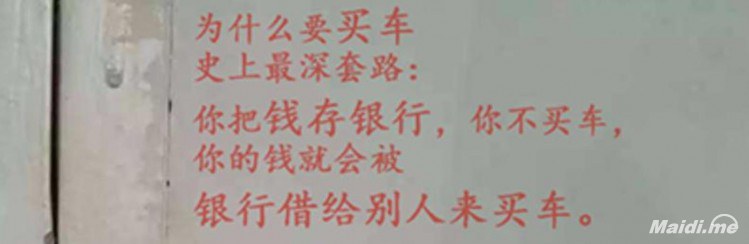 为什么要买车
史上最深套路：
你把钱存银行，你不买车，
你的钱就会被
银行借给别人来买车。
Maidi.me